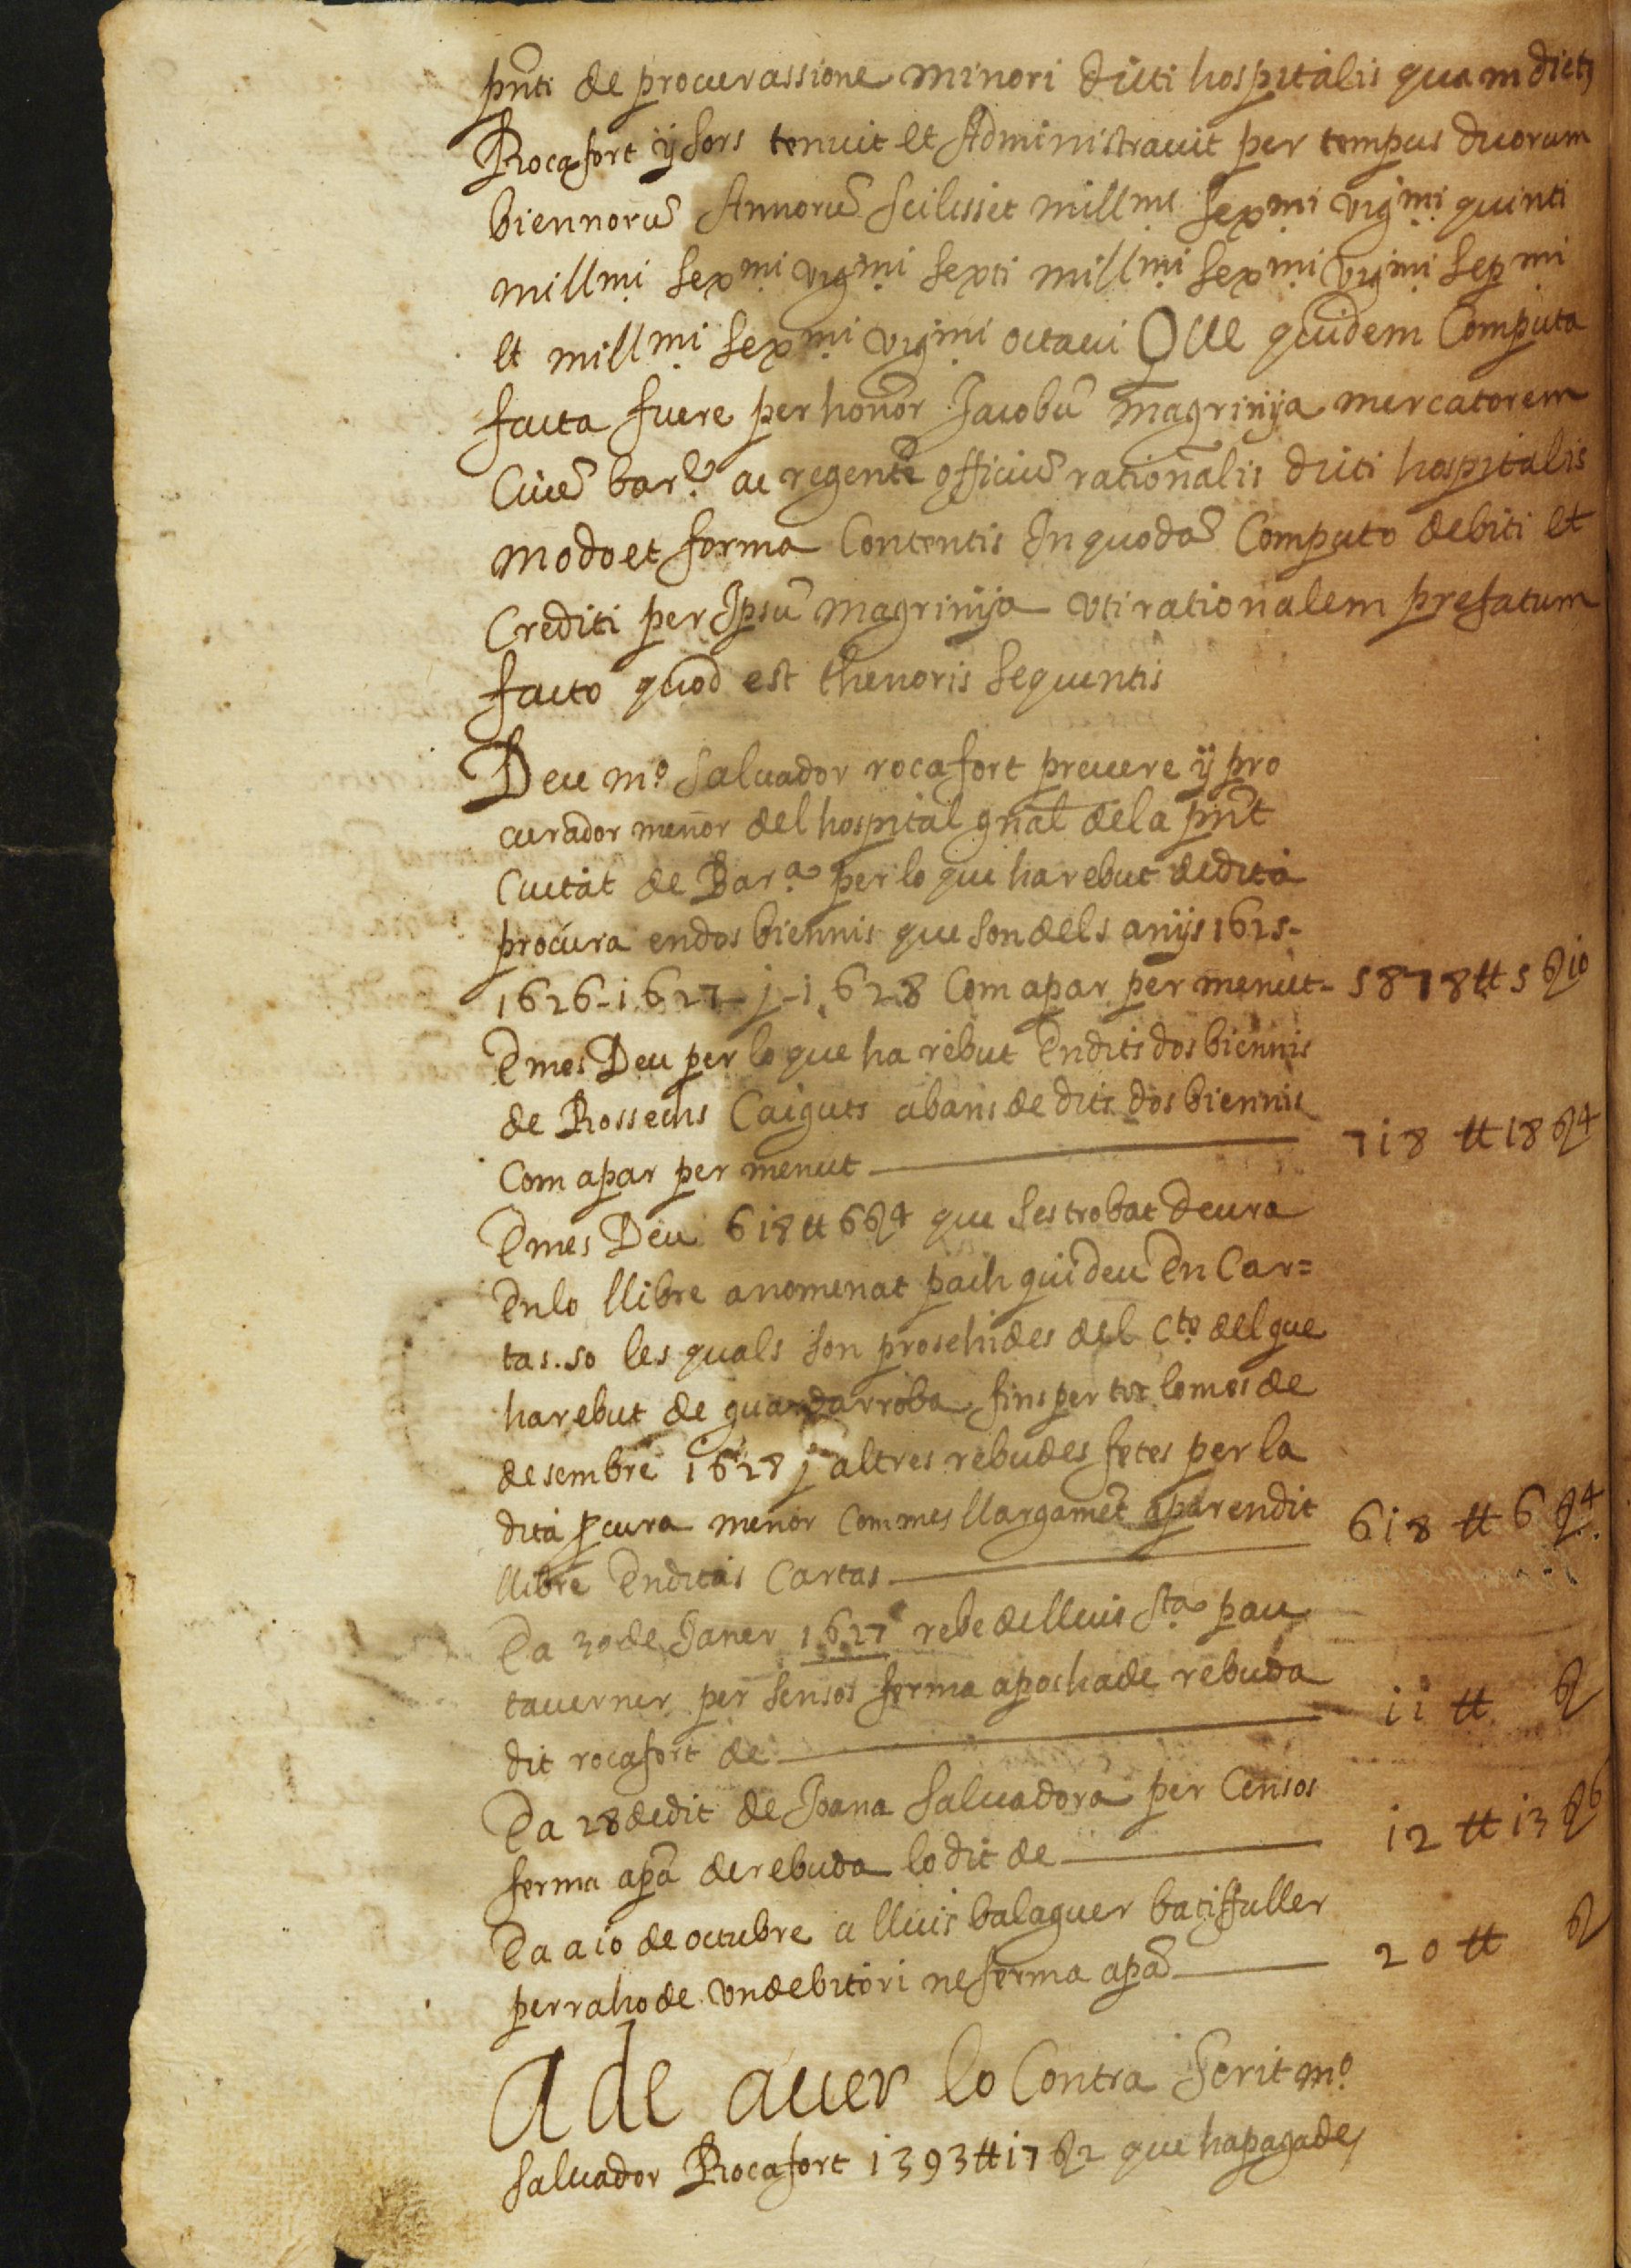 pñti de procurassione minori dicti hospitalis quam dictꝰ
Rocafort ÿ sors tenuit et Administrauit per tempus duorum
biennorū Annorū Scilisset millmi sexmi vigmi quinti
millmi sexmi vigmi sexti millmi sexmi vigmi sepmi
et millmi sexmi vigmi octaui Que quidem Computa
facta fuere per honor Jacobū magrinÿa mercatorem
Ciuē bar.e ac regentē officiū rationalis dicti hospitalis
modo et forma Contentis In quodā Computo debiti et
Crediti per Ipsū magrinÿa vti rationalem prefatum
facto quod est thenoris sequentis
Deu m.o saluador rocafort preuere ÿ pro
curador menor del hospital gñal de la pñt
Ciutat de Bar.a per lo que ha rebut de dita
procura en dos biennis que son dels anÿs 1625-
1626-1627-j-1628 Com apar per menut- 5878 ₶ 5 ẞ 10
E mes Deu per lo que ha rebut En dits dos biennis
de Rossechs Caiguts abans de dits dos biennis
Com apar per menut 718 ₶ 18 ẞ 4
E mes Deu 618 ₶ 6 ẞ 4 que ses trobat deura
En lo llibre anomenat pach qui deu En Car=
tas . 50 les quals son prosehides del Cto del que
ha rebut de guardarroba fins per tot lo mes de
desembre 1628 j altres rebudes fetes per la
dita ꝓcura menor Com mes llargamēt apar en dit
llibre En ditas Cartas 618 ₶ 6 ẞ 4
E a 30 de Janer 1627 rebe de lluis Sta pau
tauerner per sensos ferma apocha de rebuda
dit rocafort de 11 ₶ ẞ
E a 28 de dit de Joana saluadora per Censos
ferma apā de rebuda lo dit de 12 ₶ 13 ẞ 6
E a a 10 de octubre a lluis balaguer batiffuller
per raho de vn debitori ne ferma apā 20 ₶ ẞ
A de auer lo Contra scrit m.o
saluador Rocafort 1393 ₶ 17 ẞ 2 que ha pagades